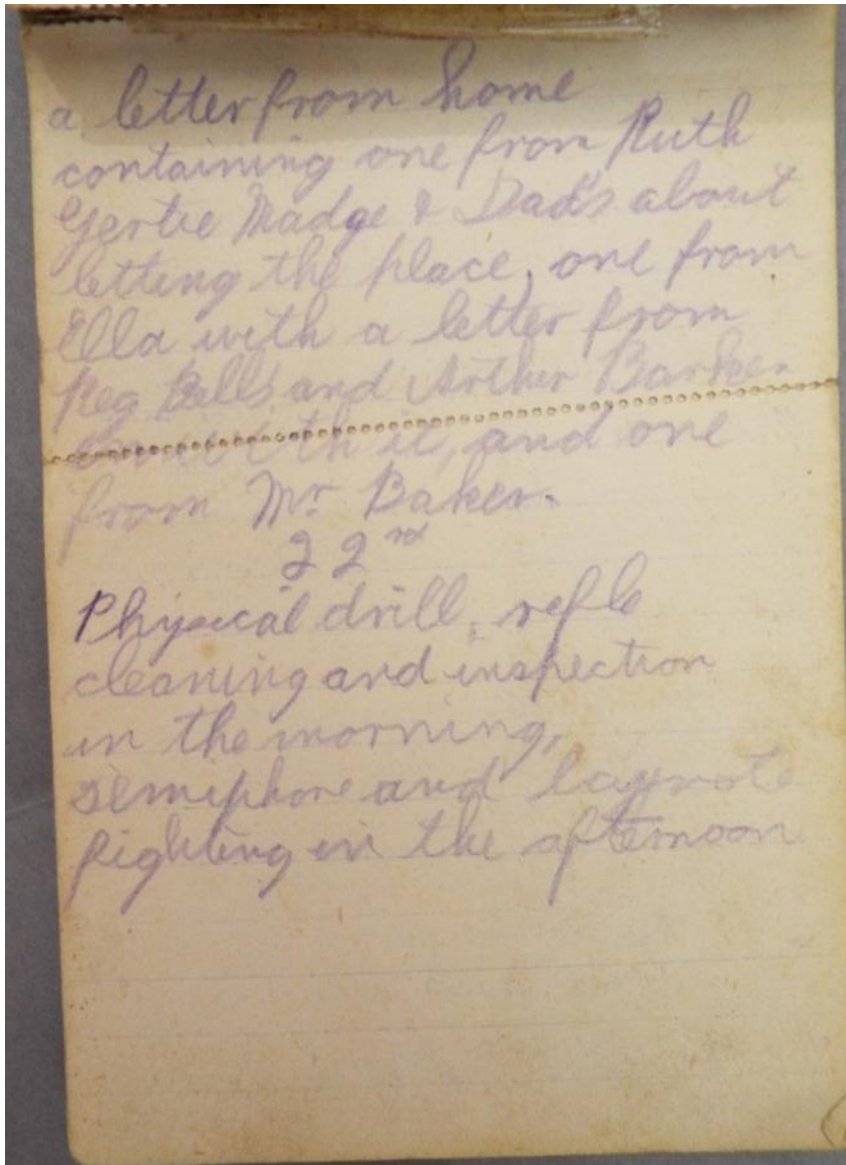 a letter from home
containing one from Ruth
Gertie Madge & Dad's about
letting the place, one from
Ella with a letter from
Reg Bells and Arthur Barker
it, and one
from Mr Baker.
22nd
Physical drill, refle
cleaning and inspection
in the morning,
semiphore and
fighting in the afternoon